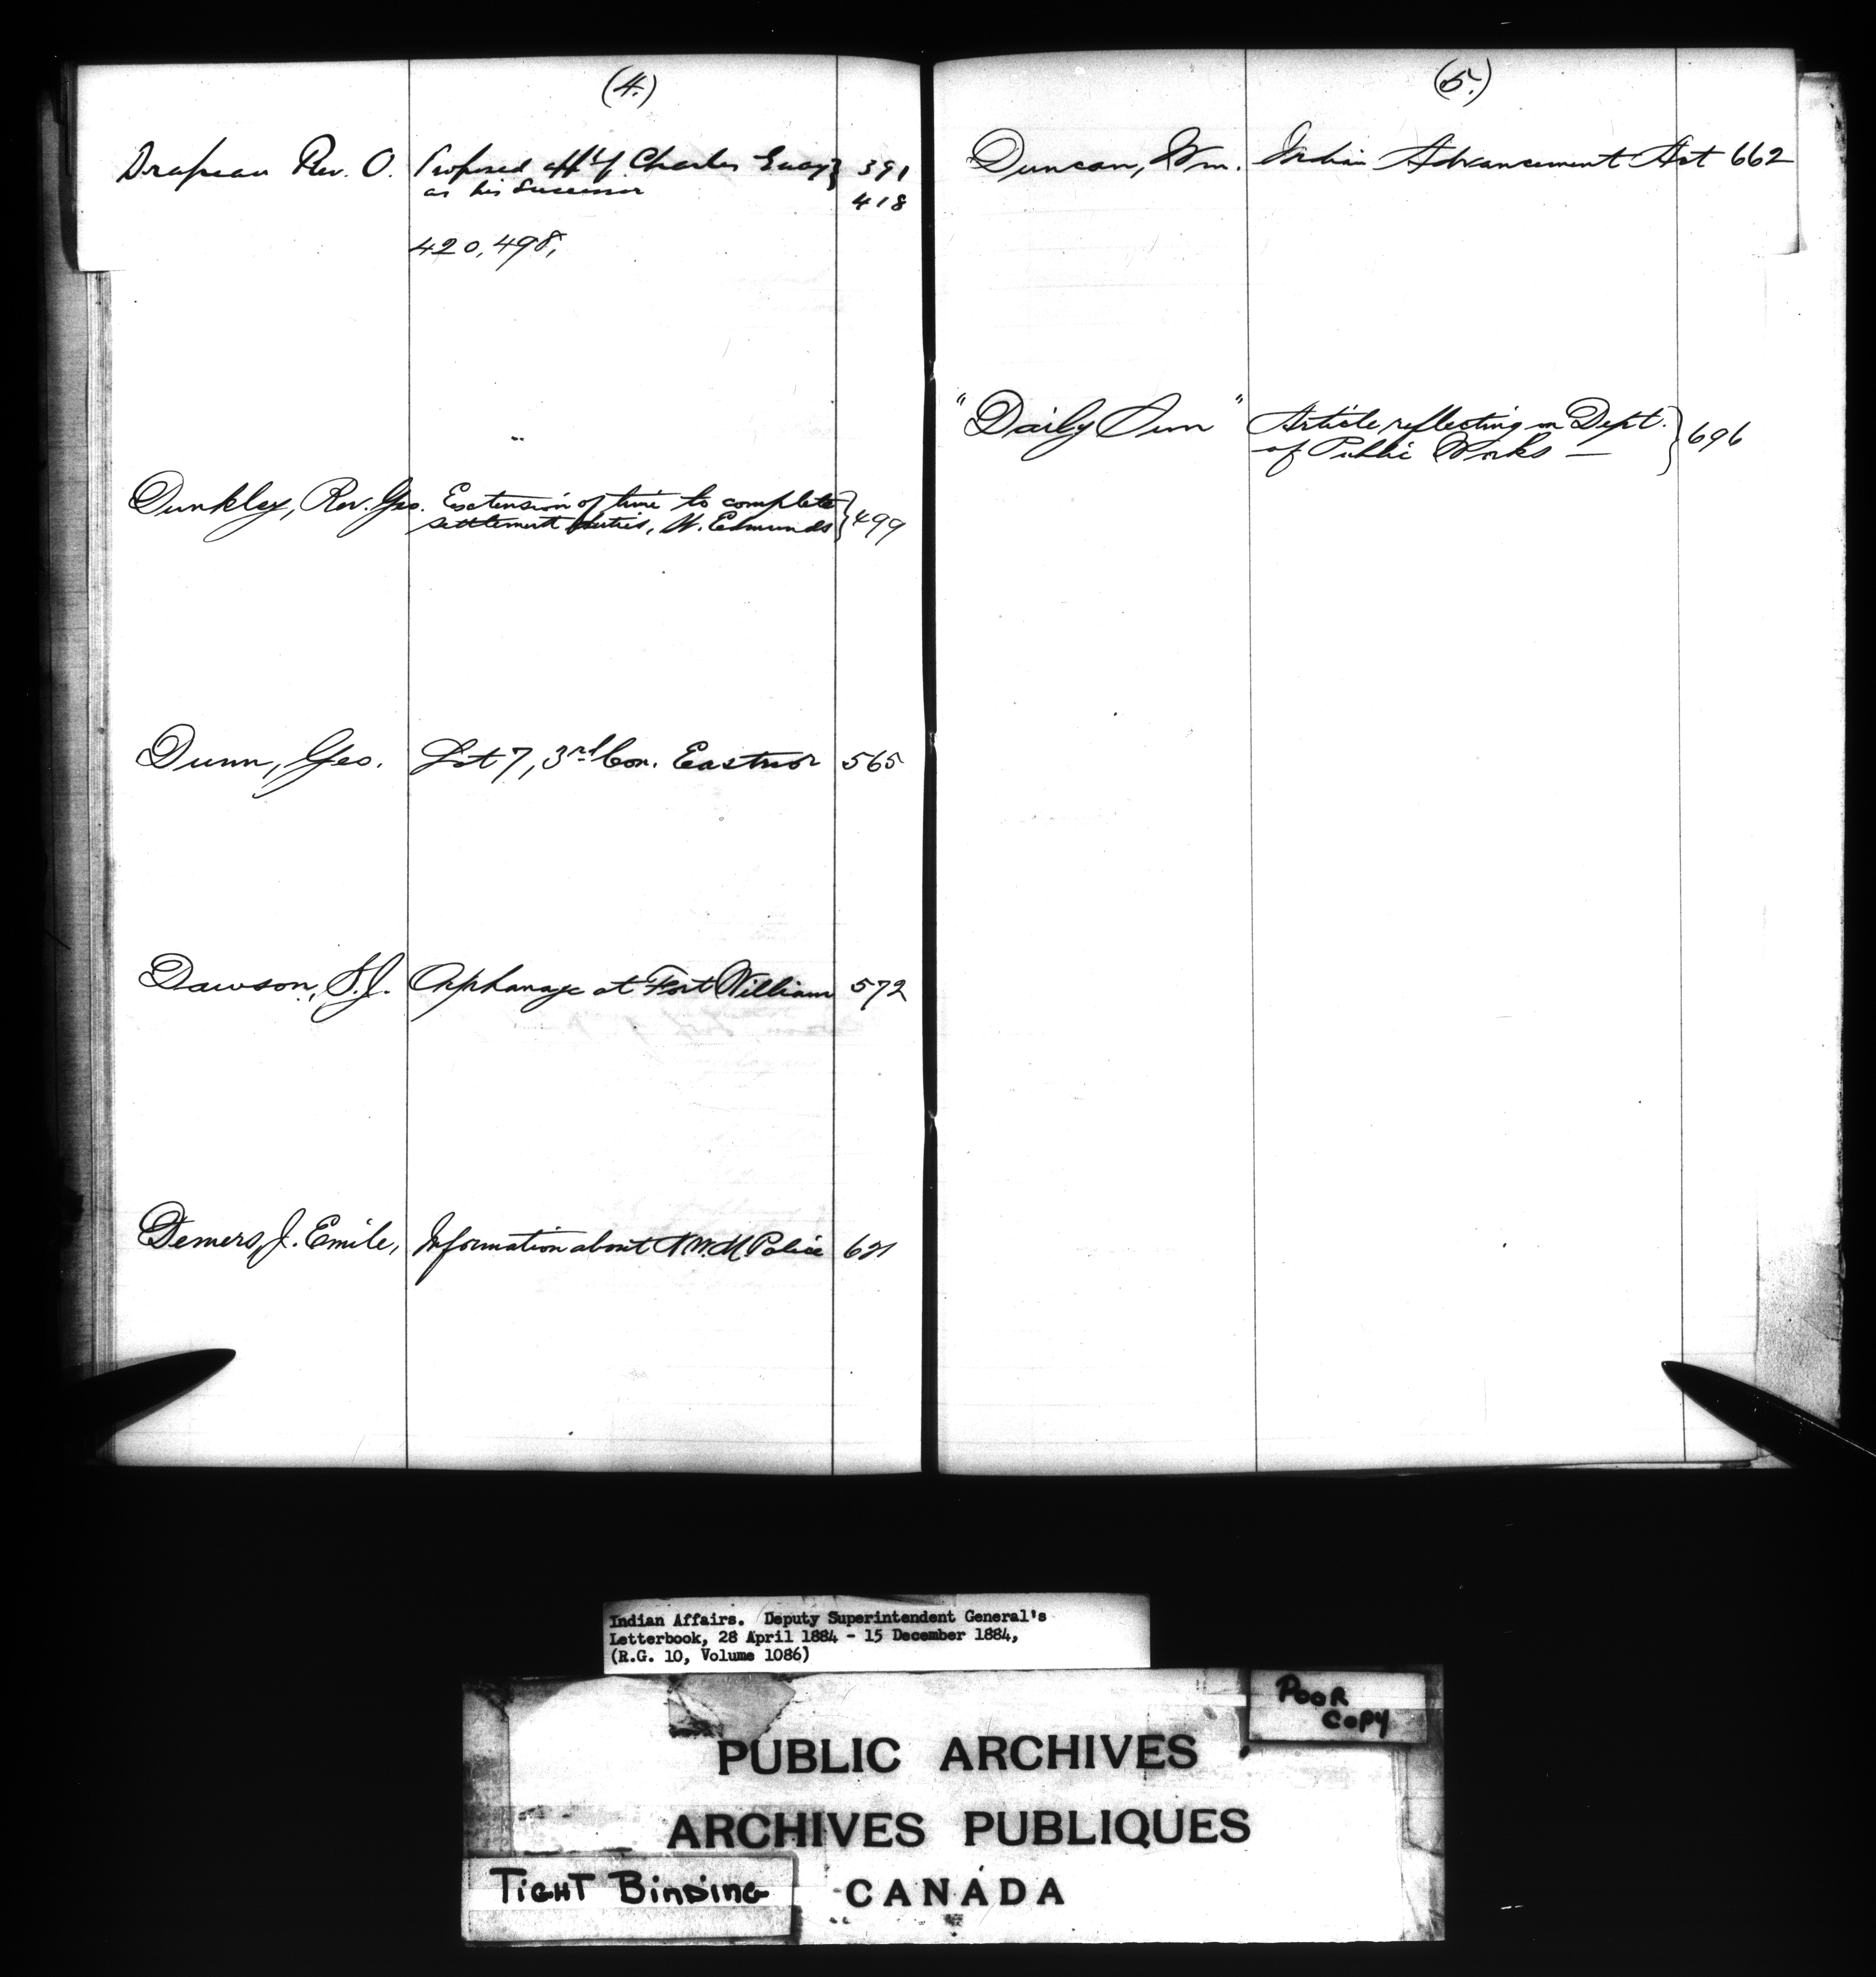 (4.)
Drapeau Rev. O. Proposed app't of Charles Guay } 391
as his Successor 418
420, 498,
Dunkley, Rev. Geo. Extension of time to complete } 499
settlement duties, W. Edmunds
Dunn, Geo. Lot 7, 3rd Con. Eastnor 565
Dawson, S.J. Orphanage at Fort William 572
Demers, J. Emile, Information about N.W.M. Police 621
(5.)
Duncan, Wm. Indian Advancement Act 662
"Daily Sun" Article reflecting on Dept. } 696
of Public Works —
Indian Affairs. Deputy Superintendent General's
Letterbook, 28 April 1884 - 15 December 1884,
(R.G. 10, Volume 1086)
POOR
COPY
PUBLIC ARCHIVES
ARCHIVES PUBLIQUES
CANADA
TIGHT BINDING